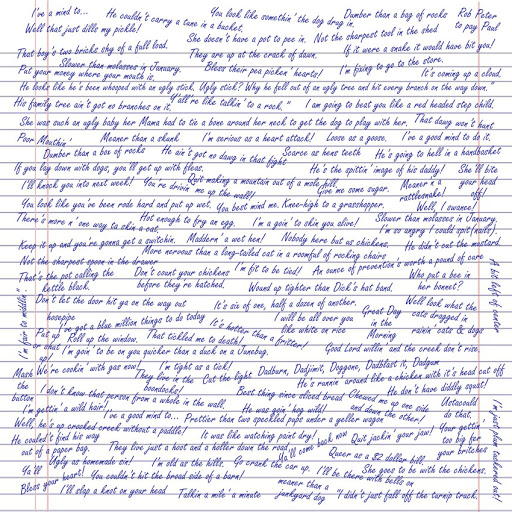 I've a mind to...
He couldn't carry a tune in a bucket.
You look like somethin' the dog drug in.
Dumber than a bag of rocks
Rob Peter
to pay Paul
Well that just dills my pickle!
She doesn't have a pot to pee in.
Not the sharpest tool in the shed
That boy's two bricks shy of a full load.
They are up at the crack of dawn.
If it were a snake it would have bit you!
Slower than molasses in January.
Bless their pea pickin' hearts!
I'm fixing to go to the store.
Put your money where your mouth is.
It's coming up a cloud.
He looks like he's been whooped with an ugly stick. Ugly stick? Why he fell out of an ugly tree and hit every branch on the way down."
His family tree ain't got no branches on it.
"Y'all're like talkin' to a rock."
I am going to beat you like a red headed step child.
She was such an ugly baby her Mama had to tie a bone around her neck to get the dog to play with her.
That dawg won't hunt
Poor Mouthin'
Meaner than a skunk
I'm serious as a heart attack!
Loose as a goose.
I've a good mind to do it.
Dumber than a box of rocks
He ain't got no dawg in that fight
Scarce as hens teeth
He's going to hell in a handbasket
If you lay down with dogs, you'll get up with fleas.
He's the spittin' image of his daddy!
She'll bite
your head
off!
I'll knock you into next week!
You're drivin' me up the wall!
Quit making a mountain out of a mole hill.
Give me some sugar.
Meaner'n a
rattlesnake!
You look like you've been rode hard and put up wet.
You best mind me.
Knee-high to a grasshopper.
Well, I swanee!
There's more n' one way to skin a cat.
Hot enough to fry an egg.
I'm a goin' to skin you alive!
Slower than molasses in January.
I'm so angry I could spit(nails).
Keep it up and you're gonna get a switchin.
Maddern' a wet hen!
Nobody here but us chickens.
He didn't cut the mustard.
More nervous than a long-tailed cat in a roomful of rocking chairs
Not the sharpest spoon in the drawer
That's the pot calling the
kettle black.
Don't count your chickens
before they're hatched.
I'm fit to be tied!
An ounce of prevention's worth a pound of cure
Who put a bee in
her bonnet?
Wound up tighter than Dick's hat band.
A bit left of center
Don't let the door hit ya on the way out
It's six of one, half a dozen of another.
Well look what the
cats dragged in
I'm fair to middlin'.
hosepipe
I've got a blue million things to do today
I will be all over you
like white on rice
Great Day
in the
Morning
rainin' cats & dogs
Put up
or shut
up!
Roll up the window.
That tickled me to death!
It's hotter than a fritter!
I'm goin' to be on you quicker than a duck on a Junebug.
Good Lord willin and the creek don't rise
Mash
the
button
We're cookin' with gas now!
I'm tight as a tick!
They live in the
boondocks!
Cut the light
Dadburn, Dadjimit, Doggone, Dadblast it, Dadgum
He's runnin around like a chicken with it's head cut off
I don't know that person from a whole in the wall.
Best thing since sliced bread
Chewed me up one side
and down the other!
He don't have diddly squat!
I'm gettin' a wild hair!
He was goin' hog wild!
Ustacould
do that.
I've a good mind to...
Prettier than two speckled pups under a geller wagon
Well, he's up crooked creek without a paddle!
Your gettin'
too big fer
your britches
He couldn't find his way
out of a paper bag.
It was like watching paint dry!
Quit jackin' your jaw!
They live just a hoot and a holler down the road
Ya'll come back now
Queer as a $2 dollar bill
I'm just plum tuckered out!
Ya'll
Ugly as homemade sin!
I'm old as the hills.
Go crank the car up.
I'll be there with bells on
She goes to be with the chickens.
Bless your heart!
You couldn't hit the broad side of a barn!
meaner than a
junkyard dog
I'll slap a knot on your head
Talkin a mile a minute
"I didn't just fall off the turnip truck.